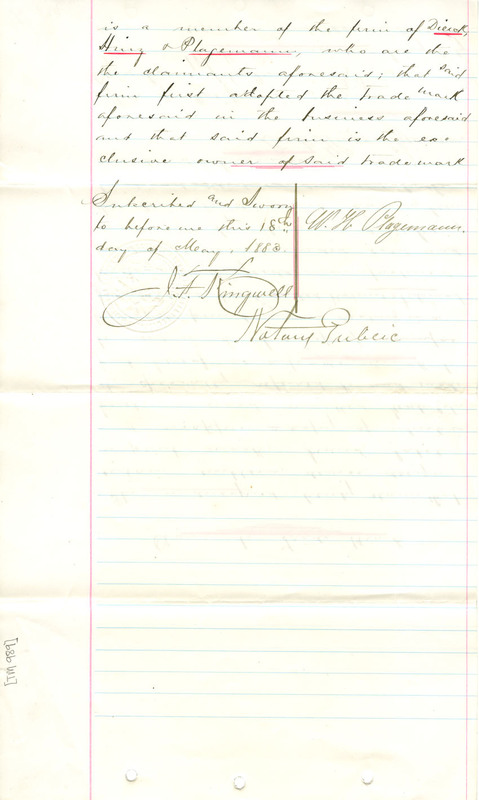 is a member of the firm of Dierck,
Hinz & Plagemann, who are the
the claimants aforesaid; that said
firm first adopted the trade mark
aforesaid in the business aforesaid
and that said firm is the ex-
clusive owner of said trademark
Subscribed and Sworn
to before me this 18th
day of May, 1888.
W. H. Plagemann.
J. F. Kingwell
Notary Public
[TM 989]